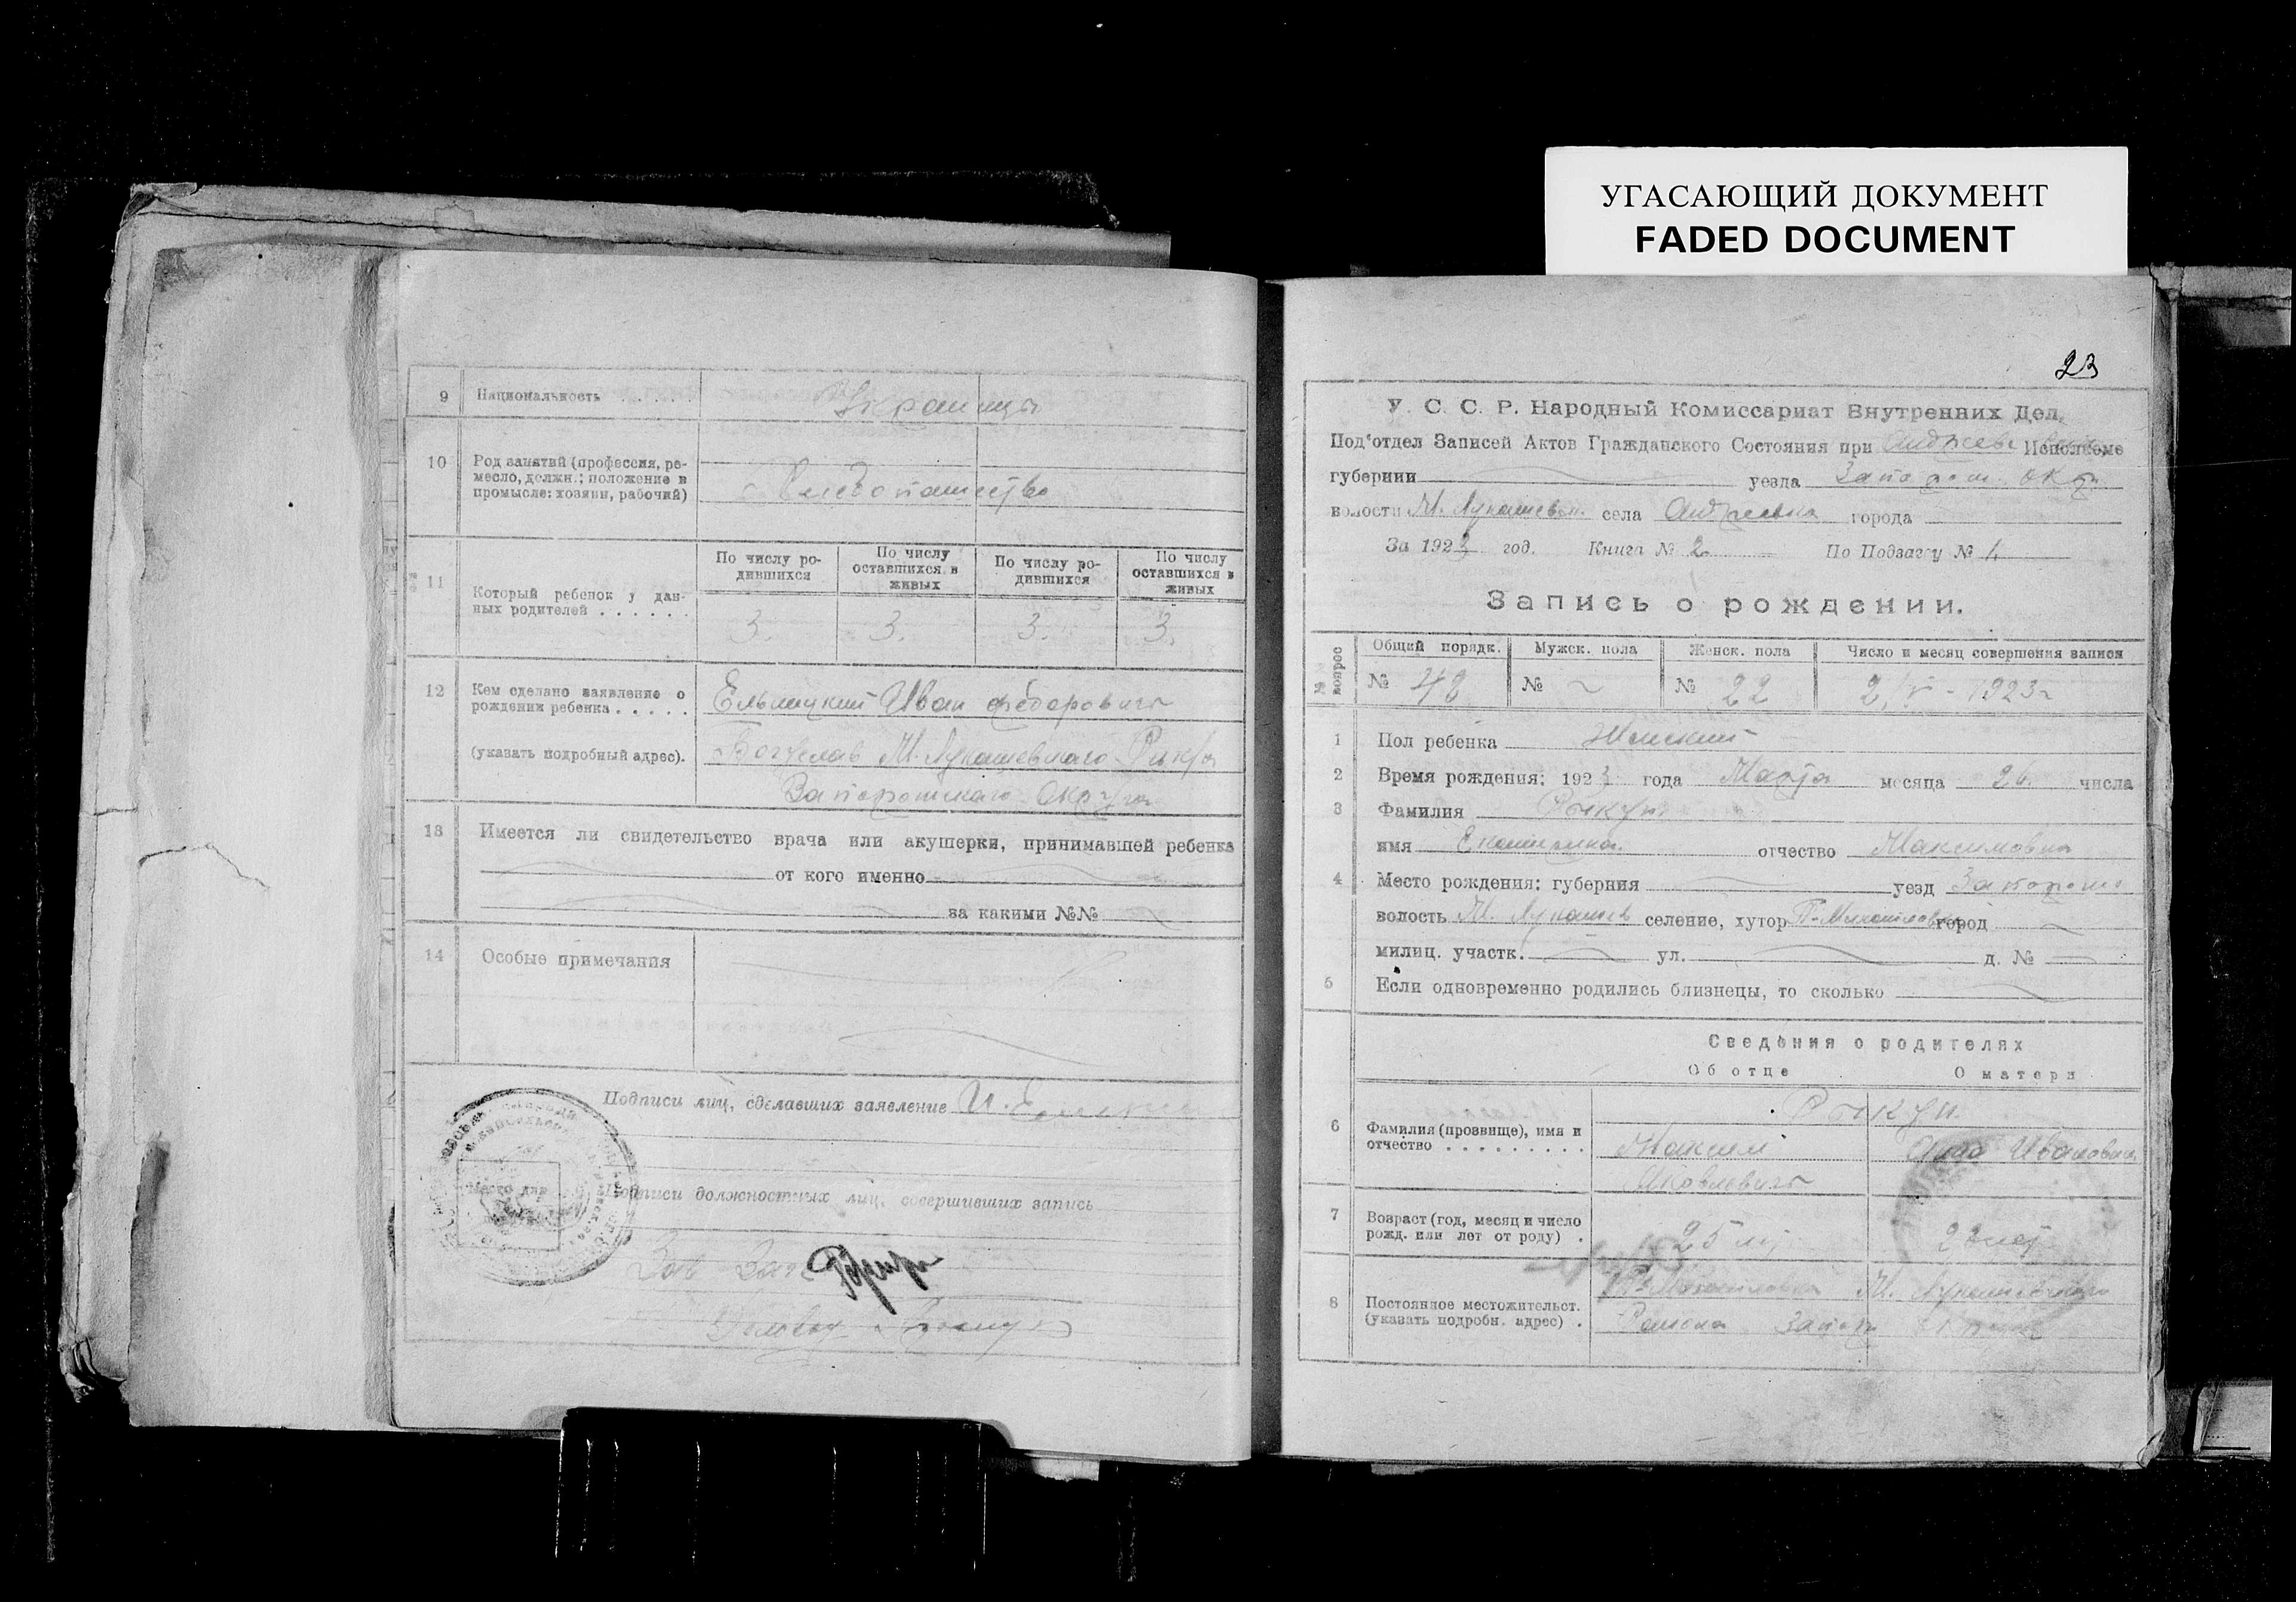 УГАСАЮЩИЙ ДОКУМЕНТ
FADED DOCUMENT
9 Национальность Украинцы
10 Род занятий (профессия, ремесло, должн.; положение в промысле: хозяин, рабочий) Хлебопашество
11 Который ребенок у данных родителей
По числу родившихся По числу оставшихся в живых По числу родившихся По числу оставшихся в живых
3. 3. 3. 3.
12 Кем сделано заявление о рождении ребенка Ельницкий Иван Федорович
(указать подробный адрес). М. Лукашевского
Запорожского Округа
13 Имеется ли свидетельство врача или акушерки, принимавшей ребенка
от кого именно
за какими №№
14 Особые примечания
Подписи лиц, сделавших заявление И.
Место для
Подписи должностных лиц, совершивших запись
Зав
23
У. С. С. Р. Народный Комиссариат Внутренних Дел.
Под'отдел Записей Актов Гражданского Состояния при Исполкоме
губернии уезда Запорож. Окр
волости М. Лукашевск. села Андреевка города
За 1923 год. Книга № 2 По Подзагсу № 1
Запись о рождении.
№№ вопрос Общий порядк. Мужск. пола Женск. пола Число и месяц совершения записи
№ 42 № ~ № 22 2/V - 1923 г
1 Пол ребенка Женский
2 Время рождения: 1923 года Марта месяца 26. числа
3 Фамилия Рыкун
имя Екатерина. отчество Максимовна
4 Место рождения: губерния уезд Запорож
волость М. Лукашев селение, хутор П-Михайловка город
милиц. участк. ул. д. №
5 Если одновременно родились близнецы, то сколько
Сведения о родителях
Об отце О матери
6 Фамилия (прозвище), имя и отчество Рыкун
Максим Анна Ивановна
Яковлевич
7 Возраст (год, месяц и число рожд. или лет от роду) 25 лет
8 Постоянное местожительст. (указать подробн. адрес) П-Михайловка М. Лукашевского
Района Запор Округа